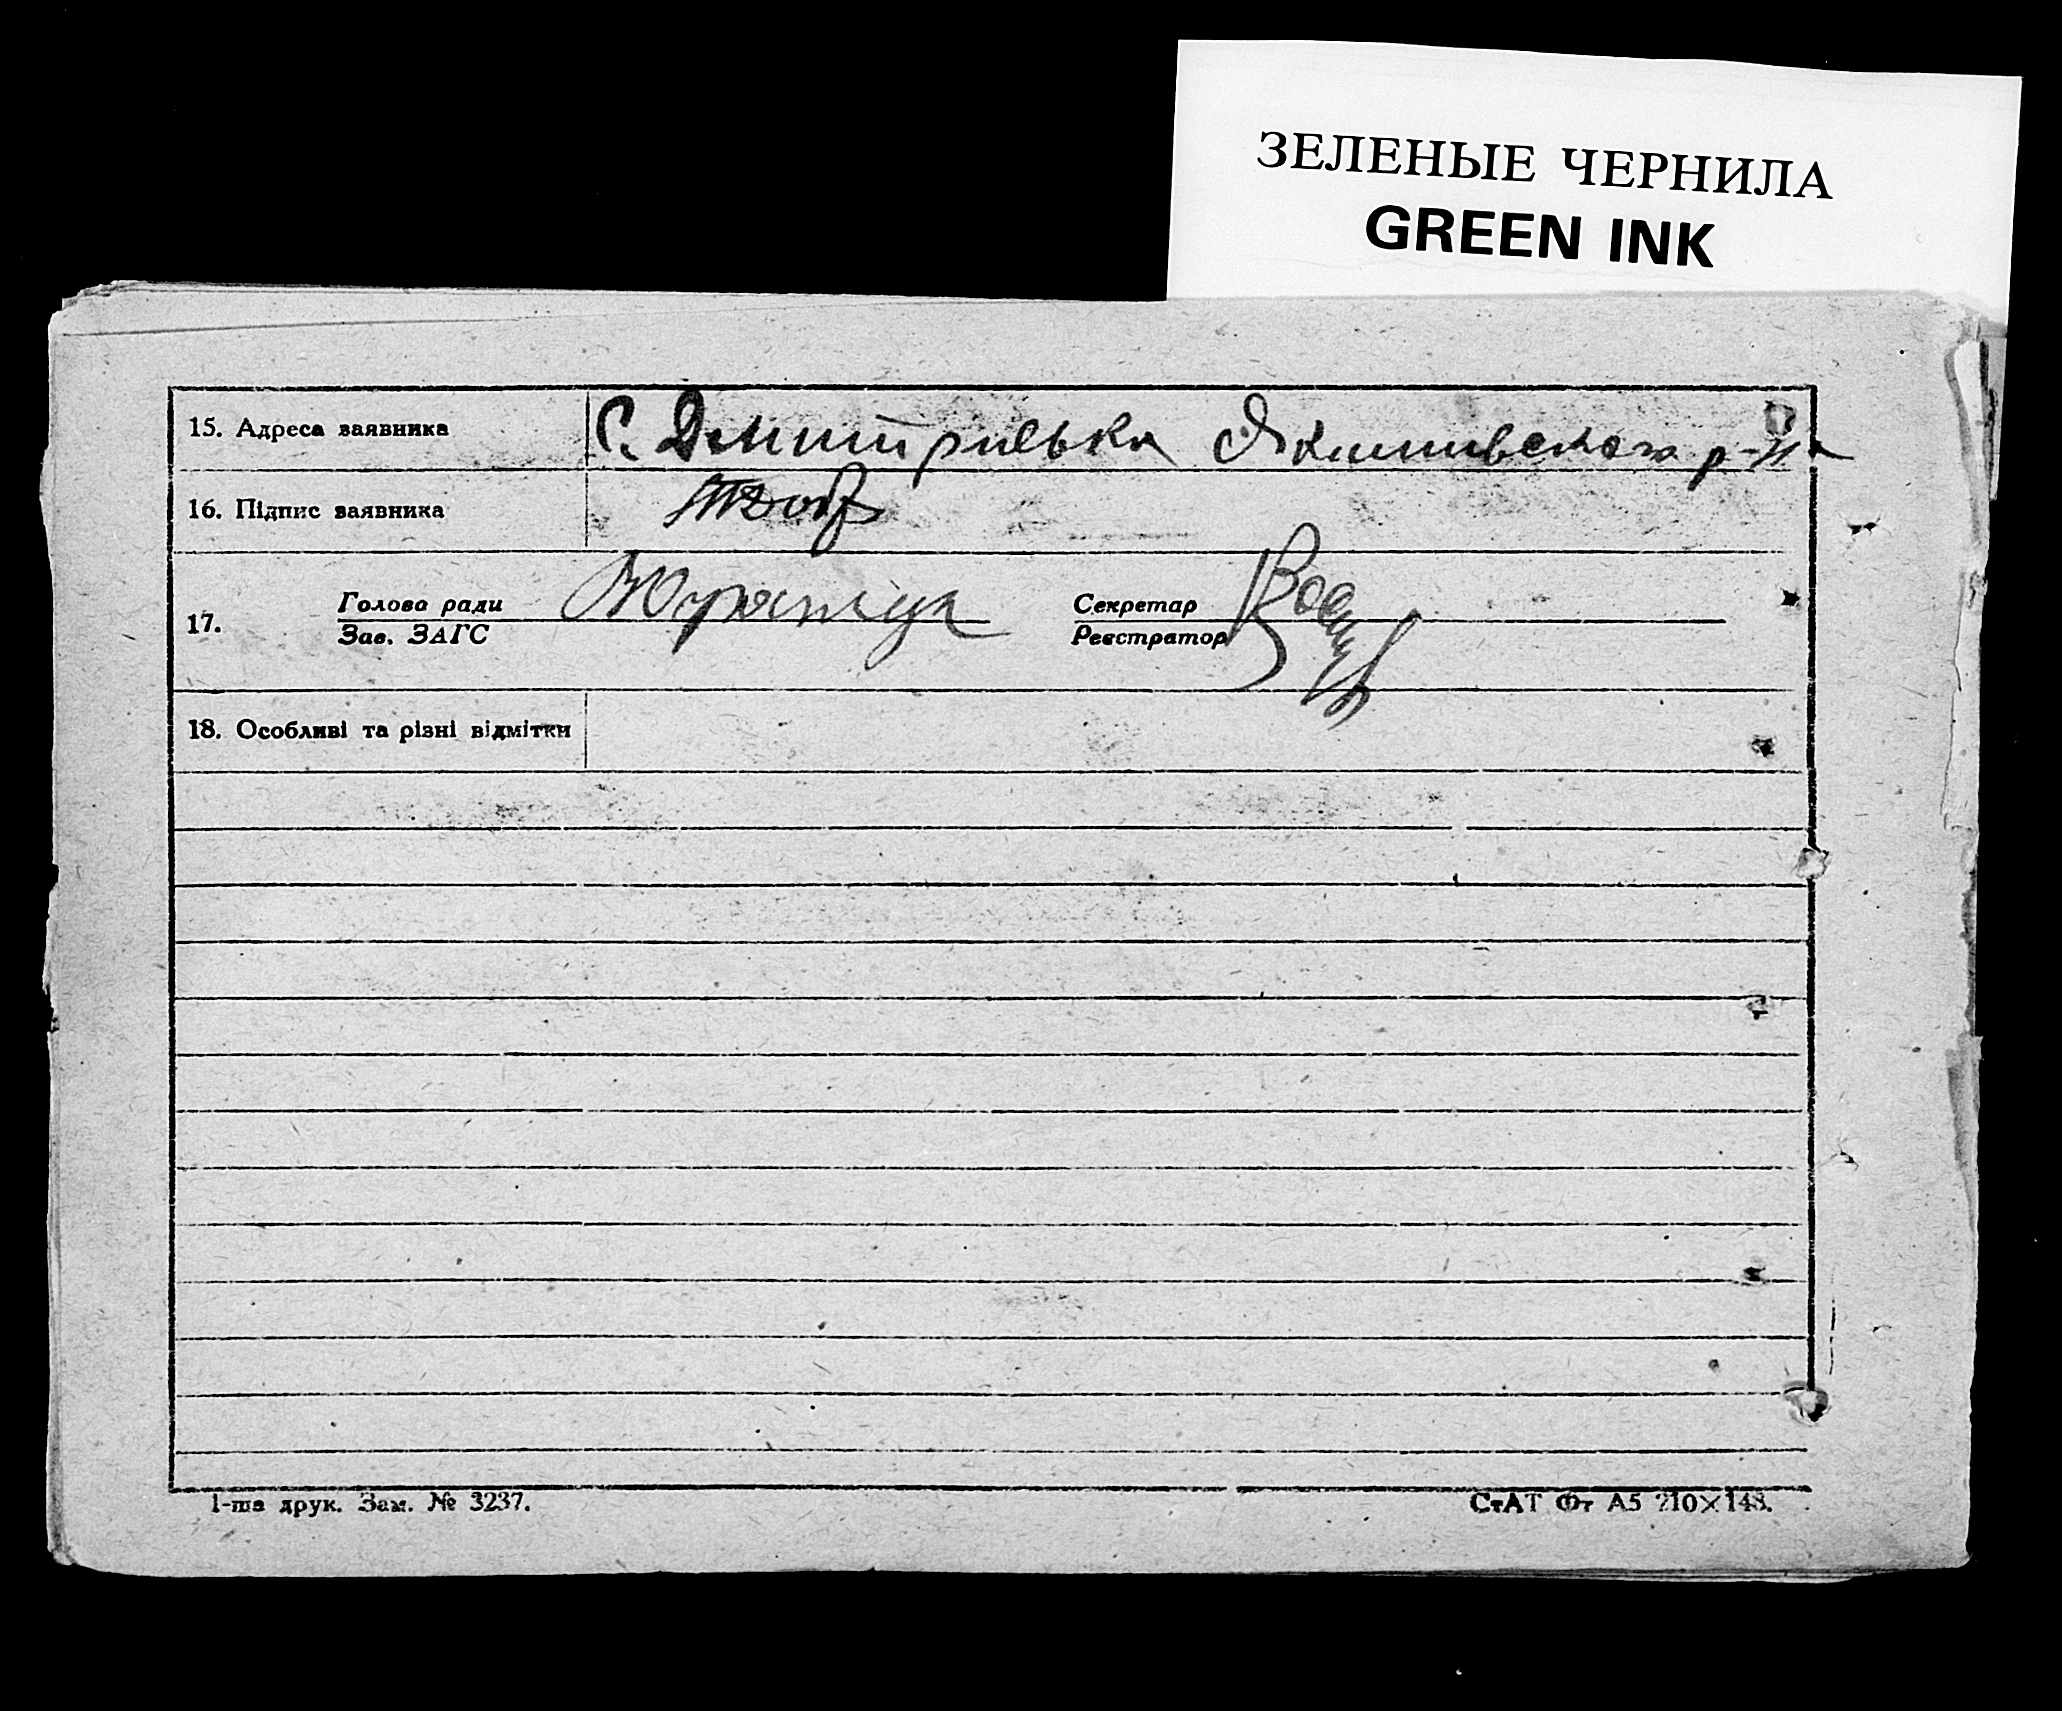 ЗЕЛЕНЫЕ ЧЕРНИЛА
GREEN INK
15. Адреса заявника С. Дмитрівька Якимивского р-на
16. Підпис заявника
17. Голова ради Секретар
Зав. ЗАГС Реєстратор
18. Особливі та різні відмітки
1-ша друк. Зам. № 3237. СтАТ Фт А5 210×148.